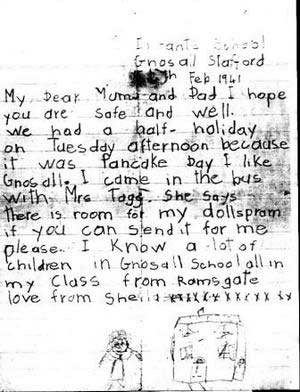 Infants School
Gnosall Stafford
th Feb 1941
My Dear Mum and Dad I hope
you are safe and well.
we had a half-holiday
on Tuesday afternoon because
it was Pancake Day I like
Gnosall. I came in the bus
with Mrs Tagg. She says
there is room for my dollspram
if you can send it for me
please. I know a lot of
children in Gnosall School all in
my Class from Ramsgate
love from Sheila xxxxxxxxxxx